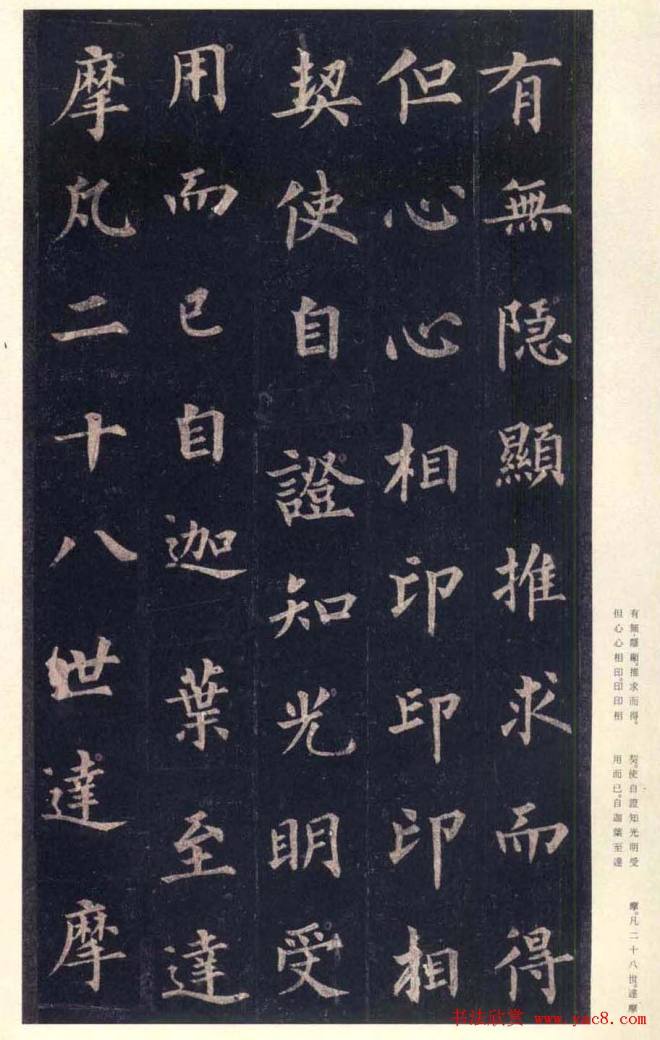 有無隱顯推求而得
但心心相印印印相
契使自證知光明受
用而已自迦葉至達
摩凡二十八世達摩
有無隱顯。推求而得。
但心心相印。印印相
契。使自證知光明受
用而已。自迦葉至達
摩。凡二十八世。達摩
书法欣赏 www.yac8.com